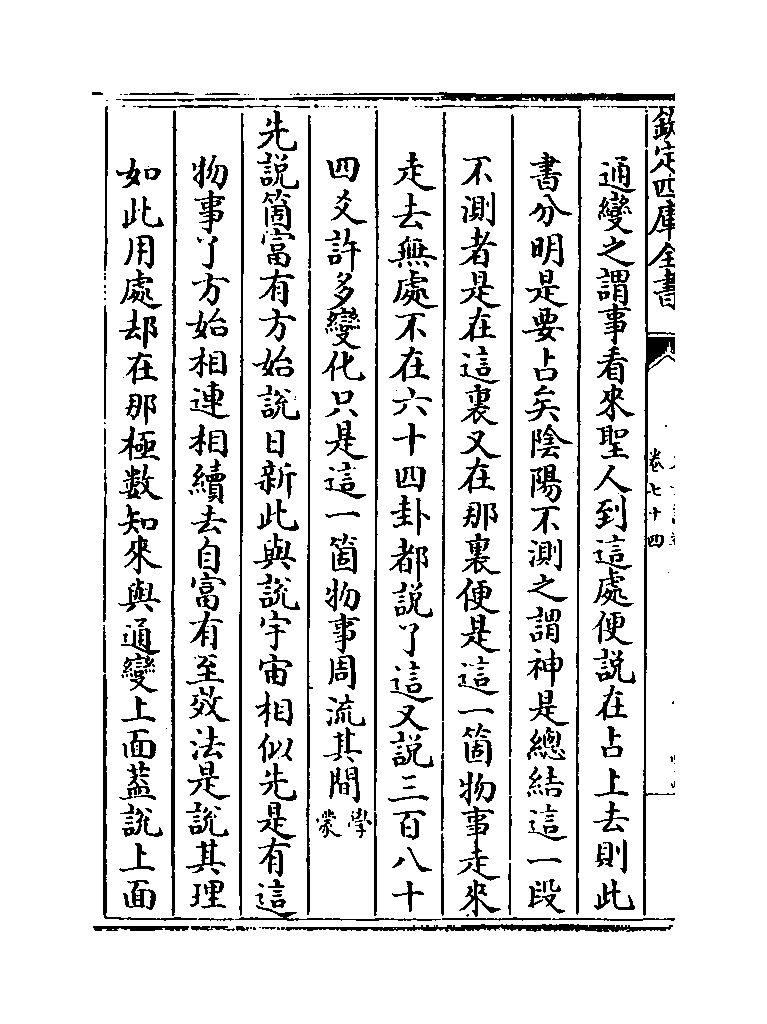 欽定四庫全書
卷七十四
通變之謂事看來聖人到這處便說在占上去則此
書分明是要占矣陰陽不測之謂神是總結這一段
不測者是在這裏又在那裏便是這一箇物事走來
走去無處不在六十四卦都說了這又說三百八十
四爻許多變化只是這一箇物事周流其間學蒙
先說箇富有方始說日新此與說宇宙相似先是有這
物事了方始相連相續去自富有至效法是說其理
如此用處却在那極數知來與通變上面蓋說上面